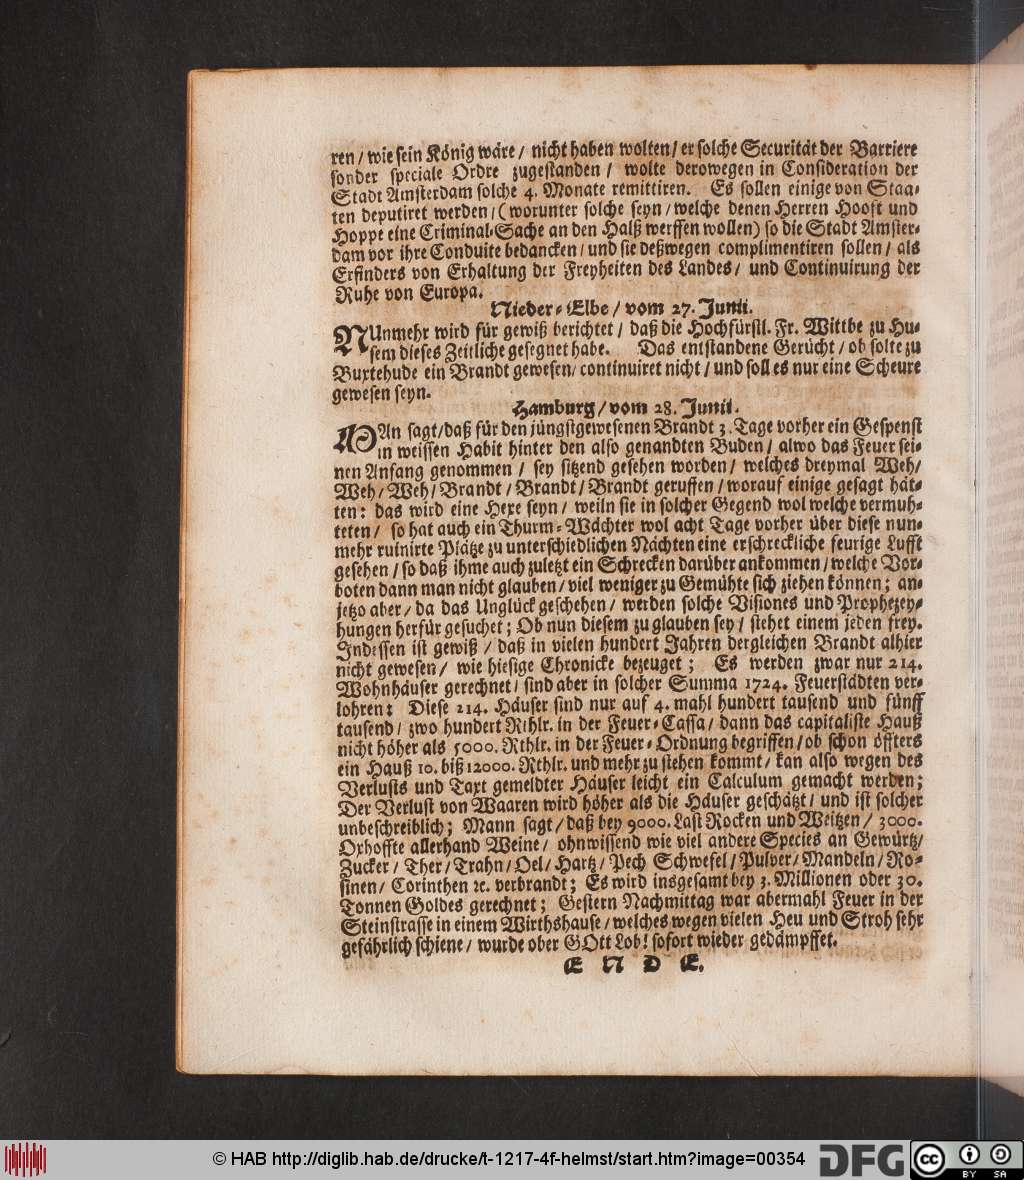 ren / wie sein König wäre / nicht haben wolten / er solche Securität der Barriere
sonder speciale Ordre zugestanden / wolte derowegen in Consideration der
Stadt Amsterdam solche 4. Monate remittiren. Es sollen einige von Staa-
ten deputiret werden / (worunter solche seyn / welche denen Herren Hooft und
Hoppe eine Criminal-Sache an den Halß werffen wollen) so die Stadt Amster-
dam vor ihre Conduite bedancken / und sie deßwegen complimentiren sollen / als
Erfinders von Erhaltung der Freyheiten des Landes / und Continuirung der
Ruhe von Europa.
Nieder-Elbe / vom 27. Junii.
NUnmehr wird für gewiß berichtet / daß die Hochfürstl. Fr. Wittbe zu Hu-
sem dieses Zeitliche gesegnet habe. Das entstandene Gerücht / ob solte zu
Buxtehude ein Brandt gewesen / continuiret nicht / und soll es nur eine Scheure
gewesen seyn.
Hamburg / vom 28. Junii.
MAn sagt / daß für den jüngstgewesenen Brandt 3. Tage vorher ein Gespenst
in weissen Habit hinter den also genandten Buden / alwo das Feuer sei-
nen Anfang genommen / sey sitzend gesehen worden / welches dreymal Weh /
Weh / Weh / Brandt / Brandt / Brandt geruffen / worauf einige gesagt hät-
ten: das wird eine Hexe seyn / weiln sie in solcher Gegend wol welche vermuh-
teten / so hat auch ein Thurm-Wächter wol acht Tage vorher über diese nun-
mehr ruinirte Plätze zu unterschiedlichen Nächten eine erschreckliche feurige Lufft
gesehen / so daß ihme auch zuletzt ein Schrecken darüber ankommen / welche Vor-
boten dann man nicht glauben / viel weniger zu Gemühte sich ziehen können; an-
jetzo aber / da das Unglück geschehen / werden solche Visiones und Prophezey-
hungen herfür gesuchet; Ob nun diesem zu glauben sey / stehet einem jeden frey.
Indessen ist gewiß / daß in vielen hundert Jahren dergleichen Brandt alhier
nicht gewesen / wie hiesige Chronicke bezeuget; Es werden zwar nur 214.
Wohnhäuser gerechnet / sind aber in solcher Summa 1724. Feuerstädten ver-
lohren: Diese 214. Häuser sind nur auf 4. mahl hundert tausend und fünff
tausend / zwo hundert Rthlr. in der Feuer-Cassa / dann das capitaliste Hauß
nicht höher als 5000. Rthlr. in der Feuer-Ordnung begriffen / ob schon öffters
ein Hauß 10. biß 12000. Rthlr. und mehr zu stehen kommt / kan also wegen des
Verlusts und Taxt gemeldter Häuser leicht ein Calculum gemacht werden;
Der Verlust von Waaren wird höher als die Häuser geschätzt / und ist solcher
unbeschreiblich; Mann sagt / daß bey 9000. Last Rocken und Weitzen / 3000.
Oxhoffte allerhand Weine / ohnwissend wie viel andere Species an Gewürtz /
Zucker / Ther / Trahn / Oel / Hartz / Pech Schwefel / Pulver / Mandeln / Ro-
sinen / Corinthen ꝛc. verbrandt; Es wird insgesamt bey 3. Millionen oder 30.
Tonnen Goldes gerechnet; Gestern Nachmittag war abermahl Feuer in der
Steinstrasse in einem Wirthshause / welches wegen vielen Heu und Stroh sehr
gefährlich schiene / wurde ober GOtt Lob! sofort wieder gedämpffet.
E N D E.
© HAB http://diglib.hab.de/drucke/t-1217-4f-helmst/start.htm?image=00354
DFG
cc BY SA